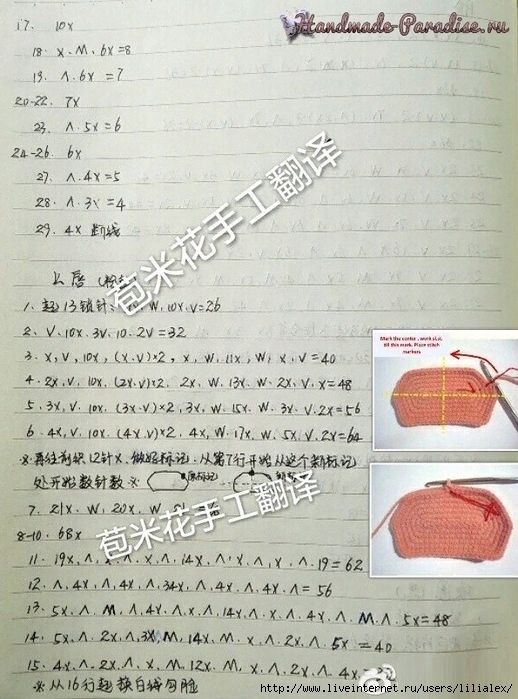 Handmade-Paradise.ru
17. 10x
18. x. M. 6x = 8
19. Λ. 6x = 7
20-22. 7x
23. Λ. 5x = 6
24-26. 6x
27. Λ. 4x = 5
28. Λ. 3x = 4
29. 4x 断线
苞米花手工翻译
上唇
1. 起13锁针 W. 10x. V = 26
2. V. 10x. 3V. 10. 2V = 32
3. x, V, 10x, (x.V)×2, x, W. 11x, W, x, V = 40
4. 2x, V, 10x. (2x.V)×2. 2x, W. 13x. W. 2x. V. x = 48
5. 3x, V. 10x. (3x.V)×2, 3x, W. 15x. W. 3x. V. 2x = 56
6. 4x, V. 10x. (4x.V)×2, 4x, W. 17x. W. 5x. V. 2x = 64
※再往前织12针x, 做好标记. 从第7行开始从这个新标记
处开始数针数※ 原标记
7. 21x. W. 20x. W.
8-10. 68x
苞米花手工翻译
11. 19x, Λ, x, Λ, x, Λ, 14x, Λ, x, Λ, x, Λ, 19 = 62
12. Λ. 4x, Λ, 4x, Λ, 34x, Λ, 4x, Λ, 4x, Λ = 56
13. 5x, Λ, M, Λ, 4x, Λ, x, Λ, 14x, Λ, x, Λ, 4x, Λ, M, Λ, 5x = 48
14. 5x, Λ. 2x, Λ, 3x, M, 14x, M. x, Λ, 2x, Λ. 5x = 40
15. 4x. Λ. 2x. Λ. x. M. 12x. M. x, Λ. 2x, Λ. 4x
※从16行起换白线勾脸
Mark the center, work sl.st.
till this mark. Place stitch
markers
http://www.liveinternet.ru/users/lilialex/